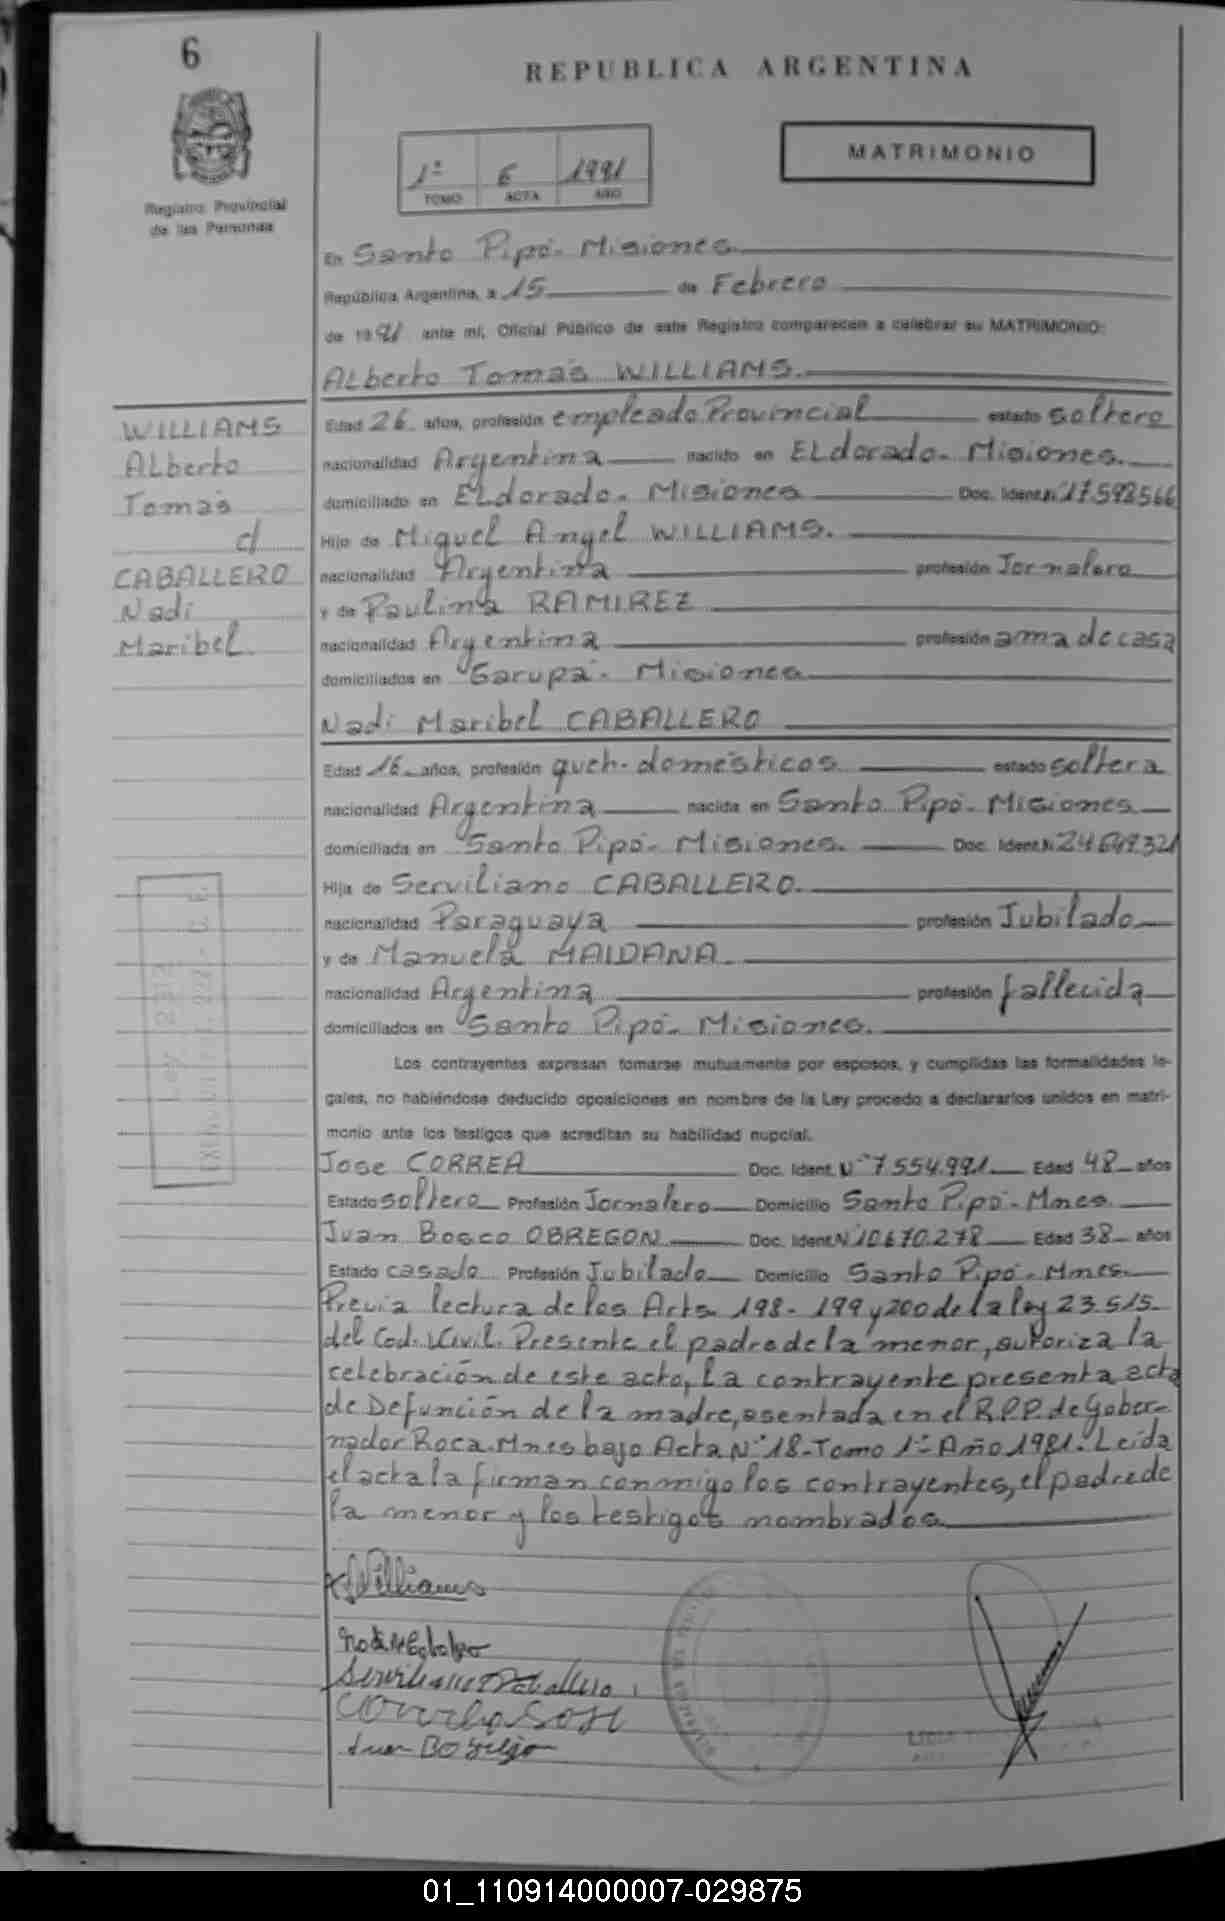 6
REPUBLICA ARGENTINA
MATRIMONIO
1º 6 1991
TOMO ACTA AÑO
Registro Provincial
de las Personas
En Santo Pipó- Misiones.
República Argentina, a 15 de Febrero
de 1991 ante mí, Oficial Público de este Registro comparecen a celebrar su MATRIMONIO:
ALberto Tomás WILLIAMS.
WILLIAMS
ALberto
Tomás
c/
CABALLERO
Nadi
Maribel.
Edad 26 años, profesión empleado Provincial estado soltero
nacionalidad Argentina nacido en ELdorado- Misiones.
domiciliado en ELdorado- Misiones Doc. Ident. Nº 17.592566
Hijo de Miguel Angel WILLIAMS.
nacionalidad Argentina profesión Jornalero
y de Paulina RAMIREZ
nacionalidad Argentina profesión ama de casa
domiciliados en Garupá- Misiones
Nadi Maribel CABALLERO
Edad 16 años, profesión queh. domésticos estado soltera
nacionalidad Argentina nacida en Santo Pipó- Misiones
domiciliada en Santo Pipó- Misiones. Doc. Ident. Nº
Hija de Serviliano CABALLERO.
nacionalidad Paraguaya profesión Jubilado
y de Manuela MAIDANA
nacionalidad Argentina profesión fallecida
domiciliados en Santo Pipó- Misiones.
Los contrayentes expresan tomarse mutuamente por esposos, y cumplidas las formalidades le-
gales, no habiéndose deducido oposiciones en nombre de la Ley procedo a declararlos unidos en matri-
monio ante los testigos que acreditan su habilidad nupcial.
Jose CORREA Doc. Ident. Nº 7.554.991 Edad 48 años
Estado soltero Profesión Jornalero Domicilio Santo Pipó- Mnes.
Juan Bosco OBREGON Doc. Ident. Nº 10.670.278 Edad 38 años
Estado casado Profesión Jubilado Domicilio Santo Pipó- Mnes.
Previa lectura de los Arts. 198- 199 y 200 de la ley 23.515-
del Cod. Civil. Presente el padre de la menor, autoriza la
celebración de este acto, La contrayente presenta acta
de Defunción de la madre, asentada en el R.P.P. de Gober-
nador Roca. Mnes bajo Acta Nº 18- Tomo 1º Año 1981. Leída
el acta la firman conmigo los contrayentes, el padre de
la menor y los testigos nombrados.
Williams
Serviliano Caballero
01_110914000007-029875